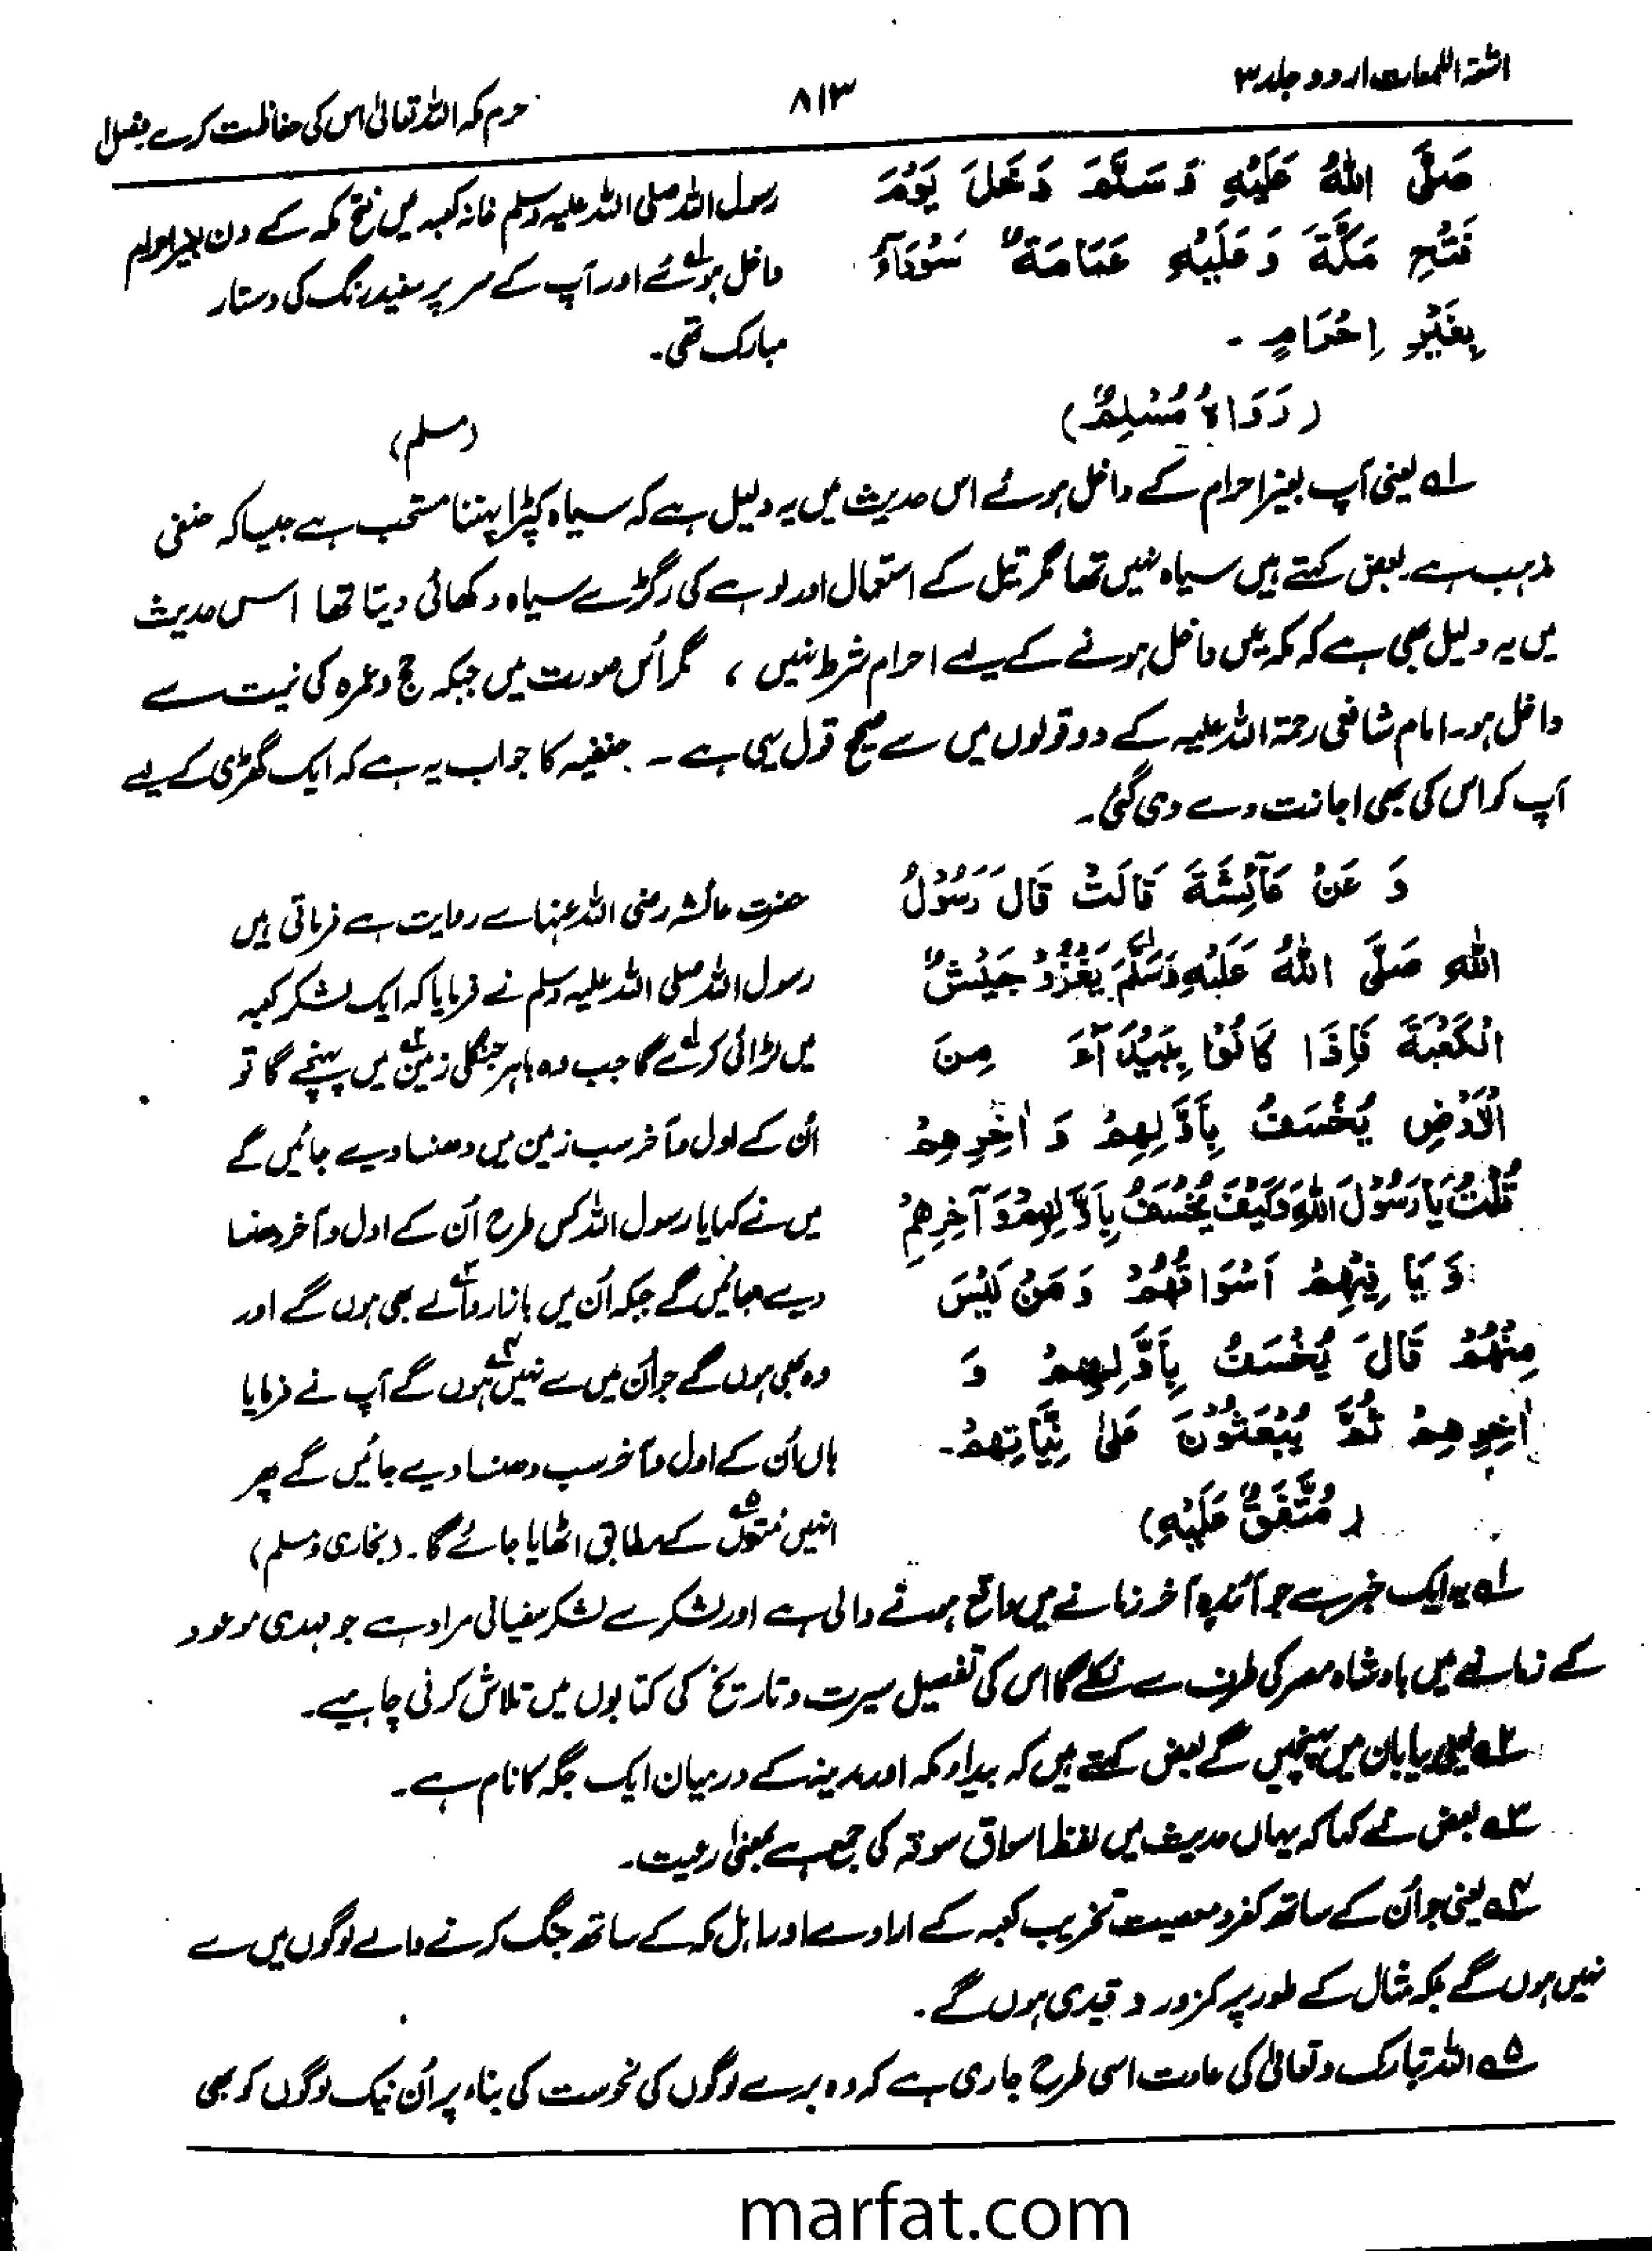 اشعۃ اللمعات اردو جلد ۳
۸۱۳
حرم مکہ اللہ تعالیٰ اس کی حفاظت کرے فصل
صَلَّى اللهُ عَلَيْهِ وَسَلَّمَ دَخَلَ يَوْمَ
فَتْحِ مَكَّةَ وَعَلَيْهِ عَمَامَةٌ سَوْدَآءُ
بِغَيْرِ اِحْرَامٍ -
(رَوَاهُ مُسْلِمٌ)
رسول اللہ صلی اللہ علیہ وسلم خانہ کعبہ میں فتح مکہ کے دن بغیر احرام
داخل ہوئے۱ اور آپ کے سر پر سفید رنگ کی دستار
مبارک تھی۔
(مسلم)
۱ یعنی آپ بغیر احرام کے داخل ہوئے اس حدیث میں یہ دلیل ہے کہ سیاہ کپڑا پہننا مستحب ہے جیسا کہ حنفی
مذہب ہے۔ بعض کہتے ہیں سیاہ نہیں تھا مگر تیل کے استعمال اور لوہے کی رگڑ سے سیاہ دکھائی دیتا تھا اس حدیث
میں یہ دلیل بھی ہے کہ مکہ میں داخل ہونے کے لیے احرام شرط نہیں ، مگر اُس صورت میں جبکہ حج و عمرہ کی نیت سے
داخل ہو۔ امام شافعی رحمۃ اللہ علیہ کے دو قولوں میں سے صحیح قول یہی ہے ۔ حنفیہ کا جواب یہ ہے کہ ایک گھڑی کے لیے
آپ کو اس کی بھی اجازت دے دی گئی۔
وَ عَنْ عَآئِشَةَ قَالَتْ قَالَ رَسُوْلُ
اللهِ صَلَّى اللهُ عَلَيْهِ وَسَلَّمَ يَغْزُوْ جَيْشٌ
الْكَعْبَةَ فَاِذَا كَانُوْا بِبَيْدَآءَ مِنَ
الْاَرْضِ يُخْسَفُ بِاَوَّلِهِمْ وَ اٰخِرِهِمْ
قُلْتُ يَا رَسُوْلَ اللهِ وَكَيْفَ يُخْسَفُ بِاَوَّلِهِمْ وَآخِرِهِمْ
وَ يَا فِيْهِمْ اَسْوَاقُهُمْ وَ مَنْ لَيْسَ
مِنْهُمْ قَالَ يُخْسَفُ بِاَوَّلِهِمْ وَ
اٰخِرِهِمْ ثُمَّ يُبْعَثُوْنَ عَلٰى نِيَّاتِهِمْ۔
(مُتَّفَقٌ عَلَيْهِ)
حضرت عائشہ رضی اللہ عنہا سے روایت ہے فرماتی ہیں
رسول اللہ صلی اللہ علیہ وسلم نے فرمایا کہ ایک لشکر کعبہ
میں لڑائی کرے۱ گا جب وہ باہر جنگلی زمین۲ میں پہنچے گا تو
اُن کے اول و آخر سب زمین میں دھنسا دیے جائیں گے
میں نے کہا یا رسول اللہ کس طرح اُن کے اول و آخر دھنسا
دیے جائیں گے جبکہ اُن میں بازار والے۳ بھی ہوں گے اور
وہ بھی ہوں گے جو اُن میں سے نہیں۴ ہوں گے آپ نے فرمایا
ہاں اُن کے اول و آخر سب دھنسا دیے جائیں گے پھر
انہیں نیتوں۵ کے مطابق اٹھایا جائے گا۔ (بخاری و مسلم)
۱ یہ ایک خبر ہے جو آئندہ آخر زمانے میں واقع ہونے والی ہے اور لشکر سے لشکر سفیانی مراد ہے جو مہدی موعود
کے زمانے میں بادشاہ مصر کی طرف سے نکلے گا اس کی تفصیل سیرت و تاریخ کی کتابوں میں تلاش کرنی چاہیے۔
۲ یعنی بیابان میں پہنچیں گے بعض کہتے ہیں کہ بیداء مکہ اور مدینہ کے درمیان ایک جگہ کا نام ہے۔
۳ بعض نے کہا کہ یہاں حدیث میں لفظ اسواق سوقہ کی جمع ہے بمعنیٰ رعیت۔
۴ یعنی جو اُن کے ساتھ کفر و معصیت تخریب کعبہ کے ارادے اور اہل مکہ کے ساتھ جنگ کرنے والے لوگوں میں سے
نہیں ہوں گے بلکہ مثال کے طور پر کمزور و قیدی ہوں گے۔
۵ اللہ تبارک و تعالیٰ کی عادت اسی طرح جاری ہے کہ وہ برے لوگوں کی نحوست کی بناء پر اُن نیک لوگوں کو بھی
marfat.com